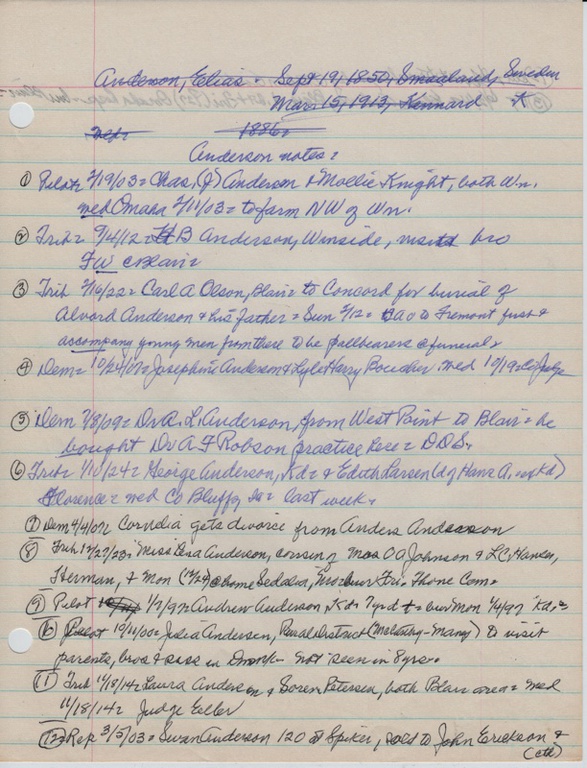 Anderson, Elias - Sept 19, 1850, Smaaland, Sweden
Mar 15, 1913, Kennard
1886=
Anderson notes =
① Pilot= 2/19/03= Chas. (J) Anderson & Mollie Knight, both Wn.
med Omaha 2/11/03= to farm NW of Wn.
② Trib= 9/4/12= H B Anderson, Winside, visitd bro
F W @ Blair=
③ Trib 2/16/22= Carl A Olson, Blair= to Concord for burial of
Alvord Anderson & his father = Sun 2/12= CAO to Fremont first &
accompany young men from there to be pallbearers @ funeral
④ Dem= 10/24/07= Josephine Anderson & Lyle Harry Boucher med 10/19=
⑤ Dem 7/8/09= Dr A. L. Anderson, from West Point to Blair= he
bought Dr A F Robson practice here= DDS.
⑥ Trib= 1/10/24= George Anderson, Kd= & Edith Larsen (dg Hans A. Kd)
Florence= med Co Bluffs, Ia= last week.
⑦ Dem 4/4/07 Cornelia gets divorce from Anders Anderson
⑧ Trib 12/27/23= Miss Lena Anderson, cousin of Mrs O A Johnson & L C Hansen,
Herman, & Mon (12/24) @ home Sedalia, Mo= bur Fri. Phone Com=
⑨ Pilot 1/7/97= Andrew Anderson, Kd= 7 yrd = bur Mon 1/4/97 Kd=
⑩ Pilot 10/11/00= Julia Andersen, Rural District (McCarthy-Maney) to visit
parents, bros & siss in Dnmk- not seen in 8 yrs.
⑪ Trib 11/18/14= Laura Anderson & Soren Petersen, both Blair area= med
11/18/14= Judge Eller
⑫ Rep 3/5/03= Swan Anderson 120 @ Spiker, sold to John Erickson &
(ctd)